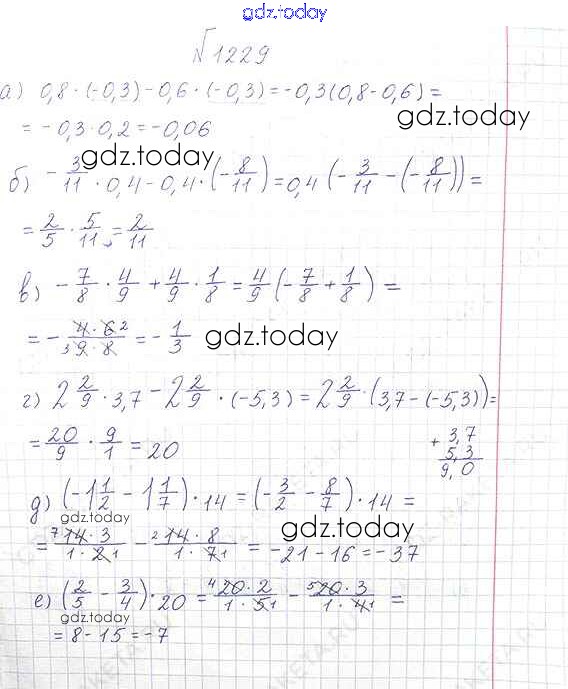 gdz.today
№1229
а) 0,8 · (-0,3) - 0,6 · (-0,3) = -0,3(0,8 - 0,6) =
gdz.today
= -0,3 · 0,2 = -0,06
gdz.today
б) -3/11 · 0,4 - 0,4 · (-8/11) = 0,4 (-3/11 - (-8/11)) =
= 2/5 · 5/11 = 2/11
в) -7/8 · 4/9 + 4/9 · 1/8 = 4/9 (-7/8 + 1/8) =
= - 4 · 6 2 / 3 9 · 8 = -1/3
gdz.today
г) 2 2/9 · 3,7 - 2 2/9 · (-5,3) = 2 2/9 · (3,7 - (-5,3)) =
= 20/9 · 9/1 = 20
+ 3,7
5,3
9,0
д) (-1 1/2 - 1 1/7) · 14 = (-3/2 - 8/7) · 14 =
gdz.today
gdz.today
= 7 14 · 3 / 1 · 2 1 - 2 14 · 8 / 1 · 7 1 = -21 - 16 = -37
е) (2/5 - 3/4) · 20 = 4 20 · 2 / 1 · 5 1 - 5 20 · 3 / 1 · 4 1 =
gdz.today
= 8 - 15 = -7